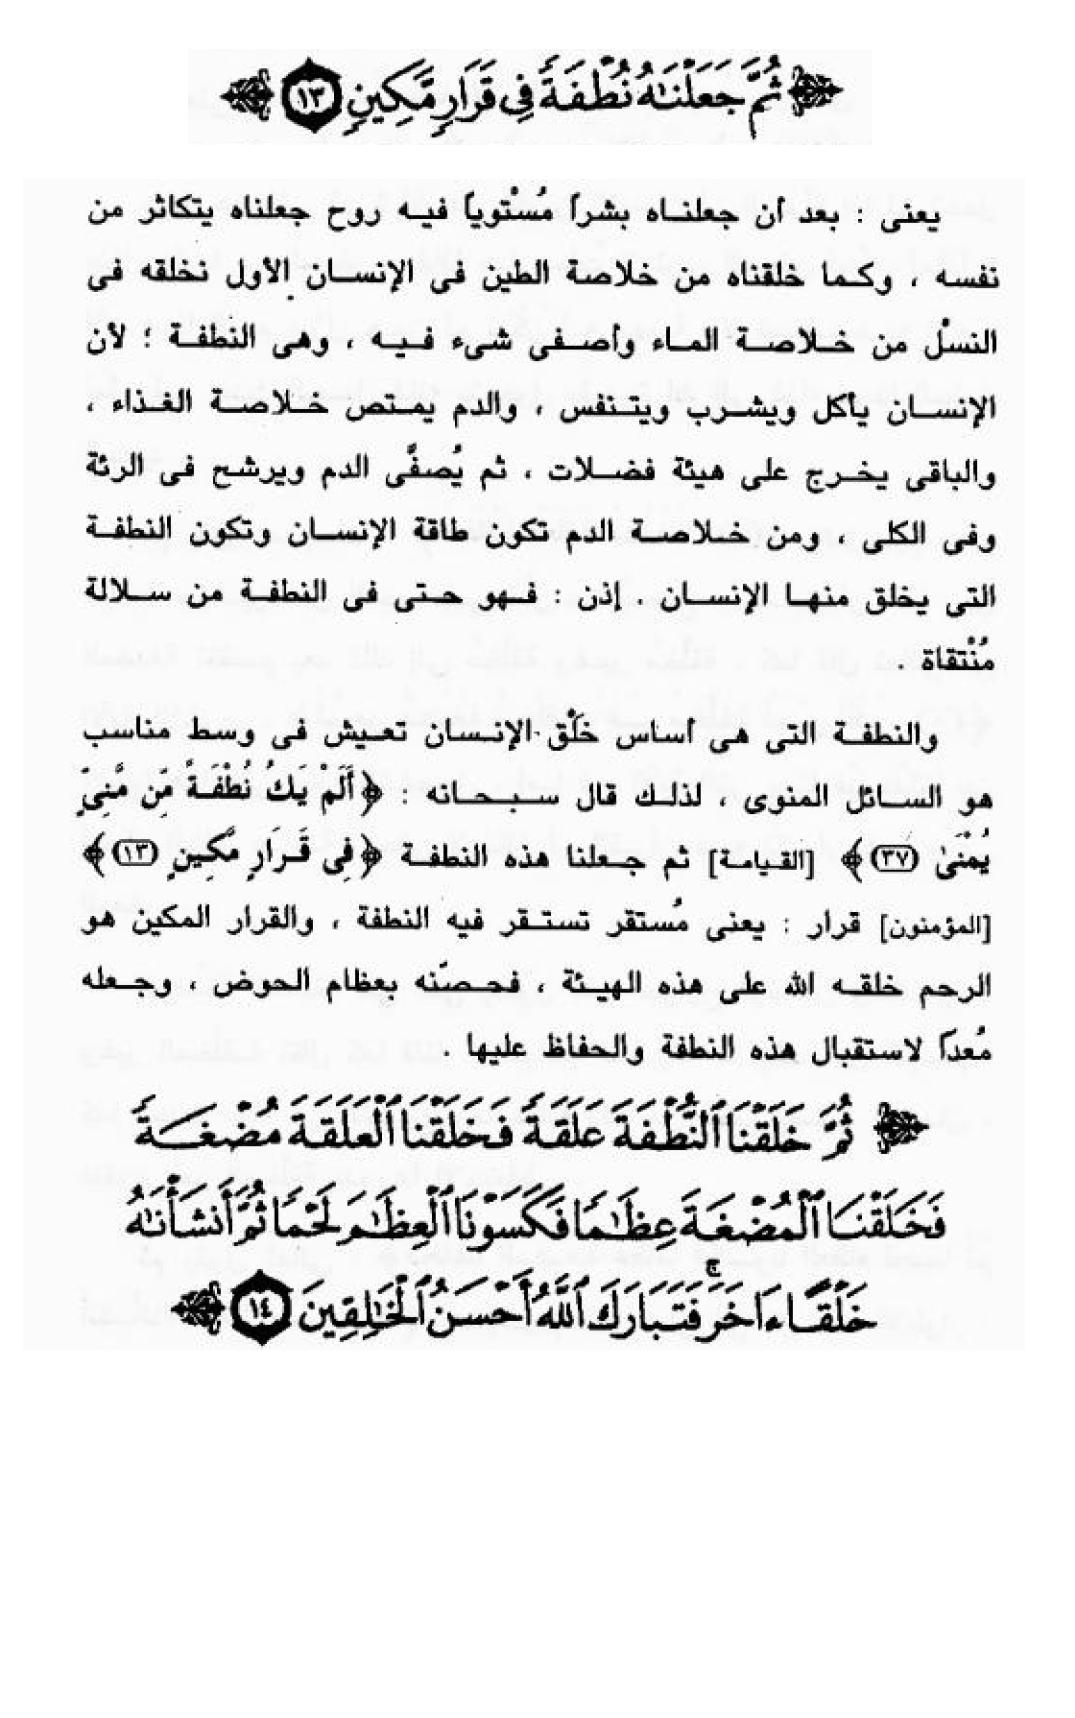 ﴿ ثُمَّ جَعَلْنَٰهُ نُطْفَةً فِى قَرَارٍ مَّكِينٍ ١٣ ﴾
يعنى : بعد أن جعلناه بشراً مُسْتوياً فيه روح جعلناه يتكاثر من
نفسه ، وكما خلقناه من خلاصة الطين فى الإنسان الأول نخلقه فى
النسْل من خلاصة الماء وأصفى شىء فيه ، وهى النطفة ؛ لأن
الإنسان يأكل ويشرب ويتنفس ، والدم يمتص خلاصة الغذاء ،
والباقى يخرج على هيئة فضلات ، ثم يُصفَّى الدم ويرشح فى الرئة
وفى الكلى ، ومن خلاصة الدم تكون طاقة الإنسان وتكون النطفة
التى يخلق منها الإنسان . إذن : فهو حتى فى النطفة من سلالة
مُنْتقاة .
والنطفة التى هى أساس خَلْق الإنسان تعيش فى وسط مناسب
هو السائل المنوى ، لذلك قال سبحانه : ﴿ أَلَمْ يَكُ نُطْفَةً مِّن مَّنِىٍّ
يُمْنَىٰ (٣٧) ﴾ [القيامة] ثم جعلنا هذه النطفة ﴿ فِى قَرَارٍ مَّكِينٍ (١٣) ﴾
[المؤمنون] قرار : يعنى مُستقر تستقر فيه النطفة ، والقرار المكين هو
الرحم خلقه الله على هذه الهيئة ، فحصّنه بعظام الحوض ، وجعله
مُعداً لاستقبال هذه النطفة والحفاظ عليها .
﴿ ثُمَّ خَلَقْنَا ٱلنُّطْفَةَ عَلَقَةً فَخَلَقْنَا ٱلْعَلَقَةَ مُضْغَةً
فَخَلَقْنَا ٱلْمُضْغَةَ عِظَٰمًا فَكَسَوْنَا ٱلْعِظَٰمَ لَحْمًا ثُمَّ أَنشَأْنَٰهُ
خَلْقًا ءَاخَرَ ۚ فَتَبَارَكَ ٱللَّهُ أَحْسَنُ ٱلْخَٰلِقِينَ ١٤ ﴾